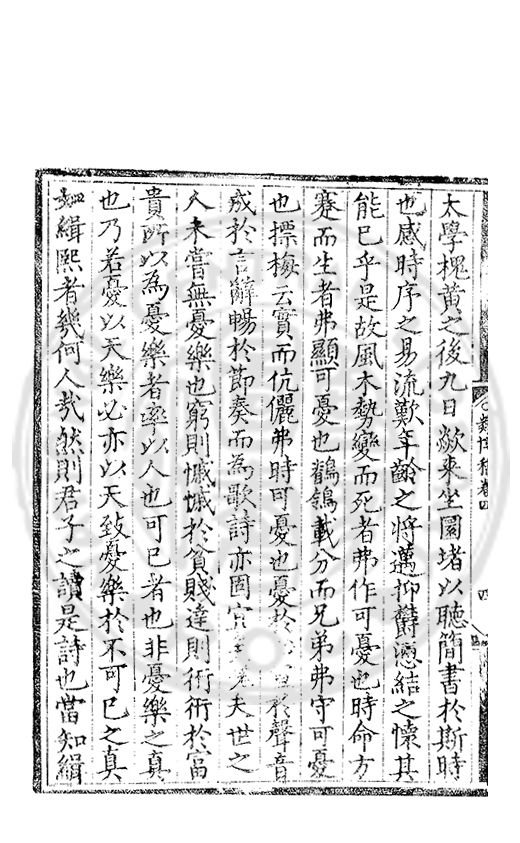 太學槐黃之後九日歘來坐圜堵以聽簡書於斯時
也感時序之易流歎年齡之將邁抑欝懣結之懷其
能已乎是故風木勢變而死者弗作可憂也時命方
蹇而生者弗顯可憂也鶺鴒載分而兄弟弗守可憂
也摽梅云實而伉儷弗時可憂也憂於於聲音
成於言辭暢於節奏而為歌詩亦固宜夫世之
人未嘗無憂樂也窮則慽慽於貧賤達則衎衎於富
貴所以為憂樂者率以人也可已者也非憂樂之真
也乃若憂以天樂必亦以天致憂樂於不可已之真
如緝熙者幾何人哉然則君子之讀是詩也當知緝
稿卷四
四